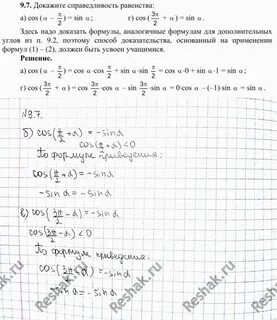 9.7. Докажите справедливость равенства:
а) cos(α − π/2) = sin α ; г) cos(3π/2 + α) = sin α .
Здесь надо доказать формулы, аналогичные формулам для дополнительных
углов из п. 9.2, поэтому способ доказательства, основанный на применении
формул (1) – (2), должен быть усвоен учащимися.
Решение.
а) cos(α − π/2) = cos α·cos π/2 + sin α·sin π/2 = cos α·0 + sin α·1 = sin α ;
г) cos(3π/2 + α) = cos 3π/2·cos α − sin 3π/2·sin α = 0·cos α − (−1)·sin α = sin α .
№9.7.
б) cos(π/2 + α) = −sin α
cos(π/2 + α) < 0
По формуле приведения:
cos(π/2 + α) = −sin α
−sin α = −sin α
в) cos(3π/2 − α) = −sin α
cos(3π/2 − α) < 0
По формуле приведения:
cos(3π/2 − α) = −sin α
−sin α = −sin α
Reshak.ru